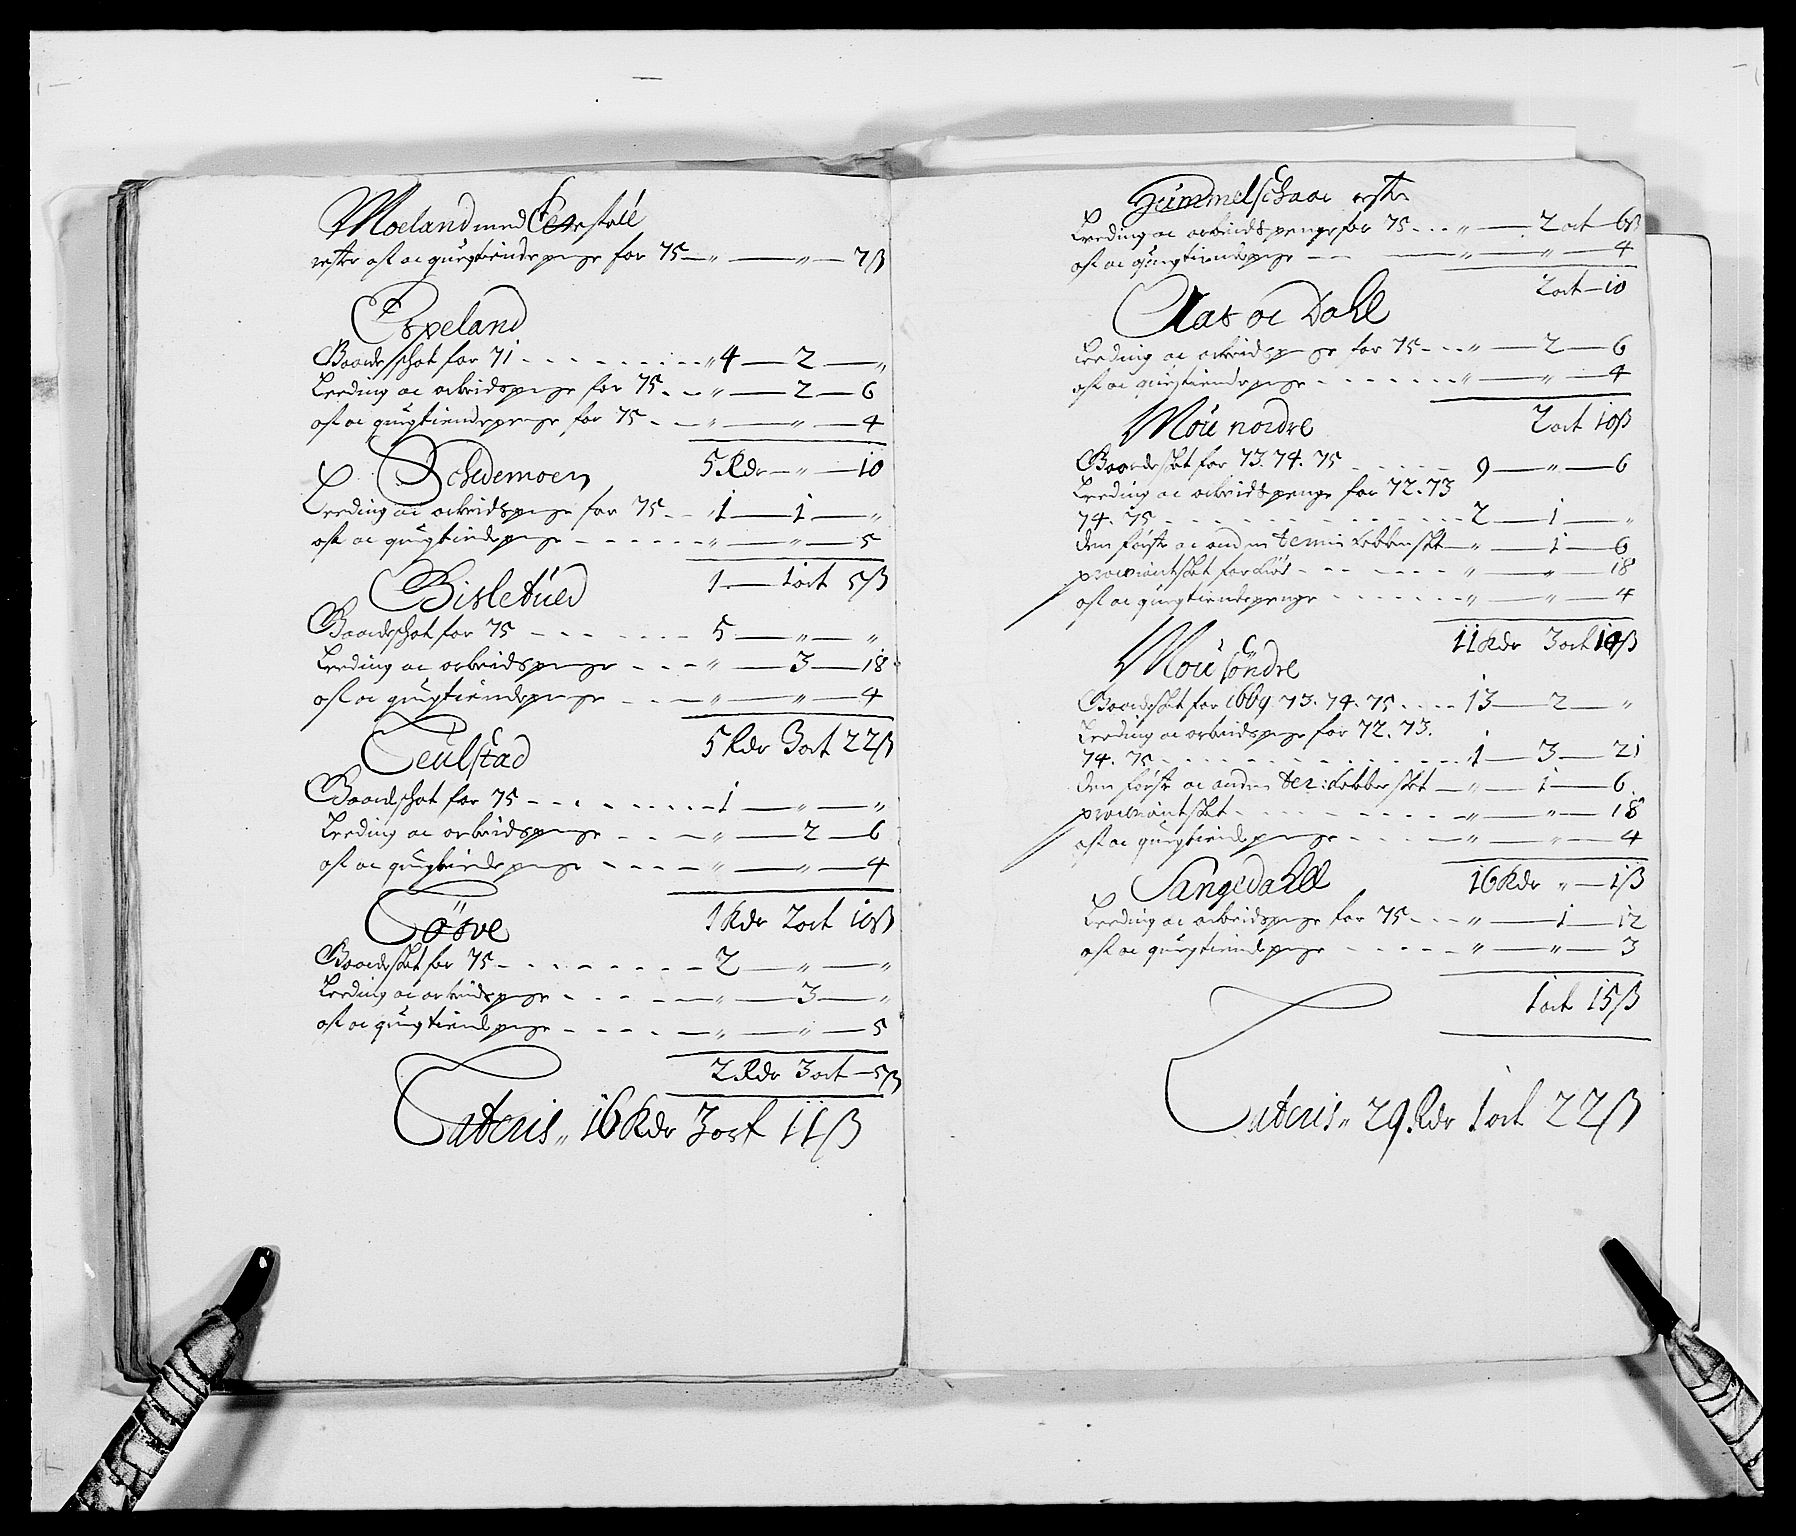 Moeland med
rester ost oc qurgtiende penge for 75 — „ — „ — 7 ß
Espeland
Baadeschat for 71 - - - „ 4 — 2 — „
Leeding oc arbeids penge for 75 - - „ — 2 — 6
ost oc qurgtiende penge for 75 - - „ — „ — 4
5 Rdr — „ — 10
Schedemoen
Leeding oc arbeids penge for 75 - - „ 1 — 1 — „
ost oc qurgtiende penge - - - „ — „ — 5
1 — 1 ort 5 ß
Bisletued
Baadeschat for 75 - - - 5 — „ — „
Leeding oc arbeids penge - - - „ — 3 — 18
ost oc qurgtiende penge - - - „ — „ — 4
5 Rdr 3 ort 22 ß
Teulstad
Baadeschat for 75 - - - 1 — „ — „
Leeding oc arbeids penge - - - „ — 2 — 6
ost oc qurgtiende penge - - - „ — „ — 4
1 Rdr 2 ort 10 ß
Baadeskat for 75 - - - 2 — „ — „
Leeding oc arbeids penge - - - „ — 3 — „
ost oc qurgtiend penge - - - „ — „ — 5
2 Rdr 3 ort — 5 ß
Lateris „ 16 Rdr 3 ort 11 ß
Himmelschaar rester
Leeding oc arbeids penge for 75 - - „ — 2 ort — 6 ß
ost oc qurgtiende penge - - — „ — „ — 4
2 ort — 10
Aas oc Dahl
Leeding oc arbeids penge for 75 - - „ — 2 — 6
ost oc qurgtiende penge - - - „ — „ — 4
2 ort 10 ß
Moü nordre
Baadeskat for 73. 74. 75 - - - 9 — „ — 6
Leeding oc arbeids penge for 72. 73
74. 75 - - - 2 — 1 — „
den første oc anden termin Kobberskat — „ — 1 — 6
proviantskat for - - - „ — „ — 18
ost oc qurgtiende penge - - - „ — „ — 4
11 Rdr 3 ort 10 ß
Moü söndre
Baadeskat for 1669 73. 74. 75 - - 13 — 2 — „
Leeding oc arbeids penge for 72. 73.
74. 75 - - - 1 — 3 — 21
den første oc anden ter: Kobberskat — „ — 1 — 6
proviantskat - - - „ — „ — 18
ost oc qurgtiende penge - - - „ — „ — 4
16 Rdr „ — 1 ß
Langedahll
Leeding oc arbeids penge for 75 - - „ — 1 — 12
ost oc qurgtiende penge - - - „ — „ — 3
1 ort 15 ß
Lateris „ 29 Rdr 1 ort 22 ß